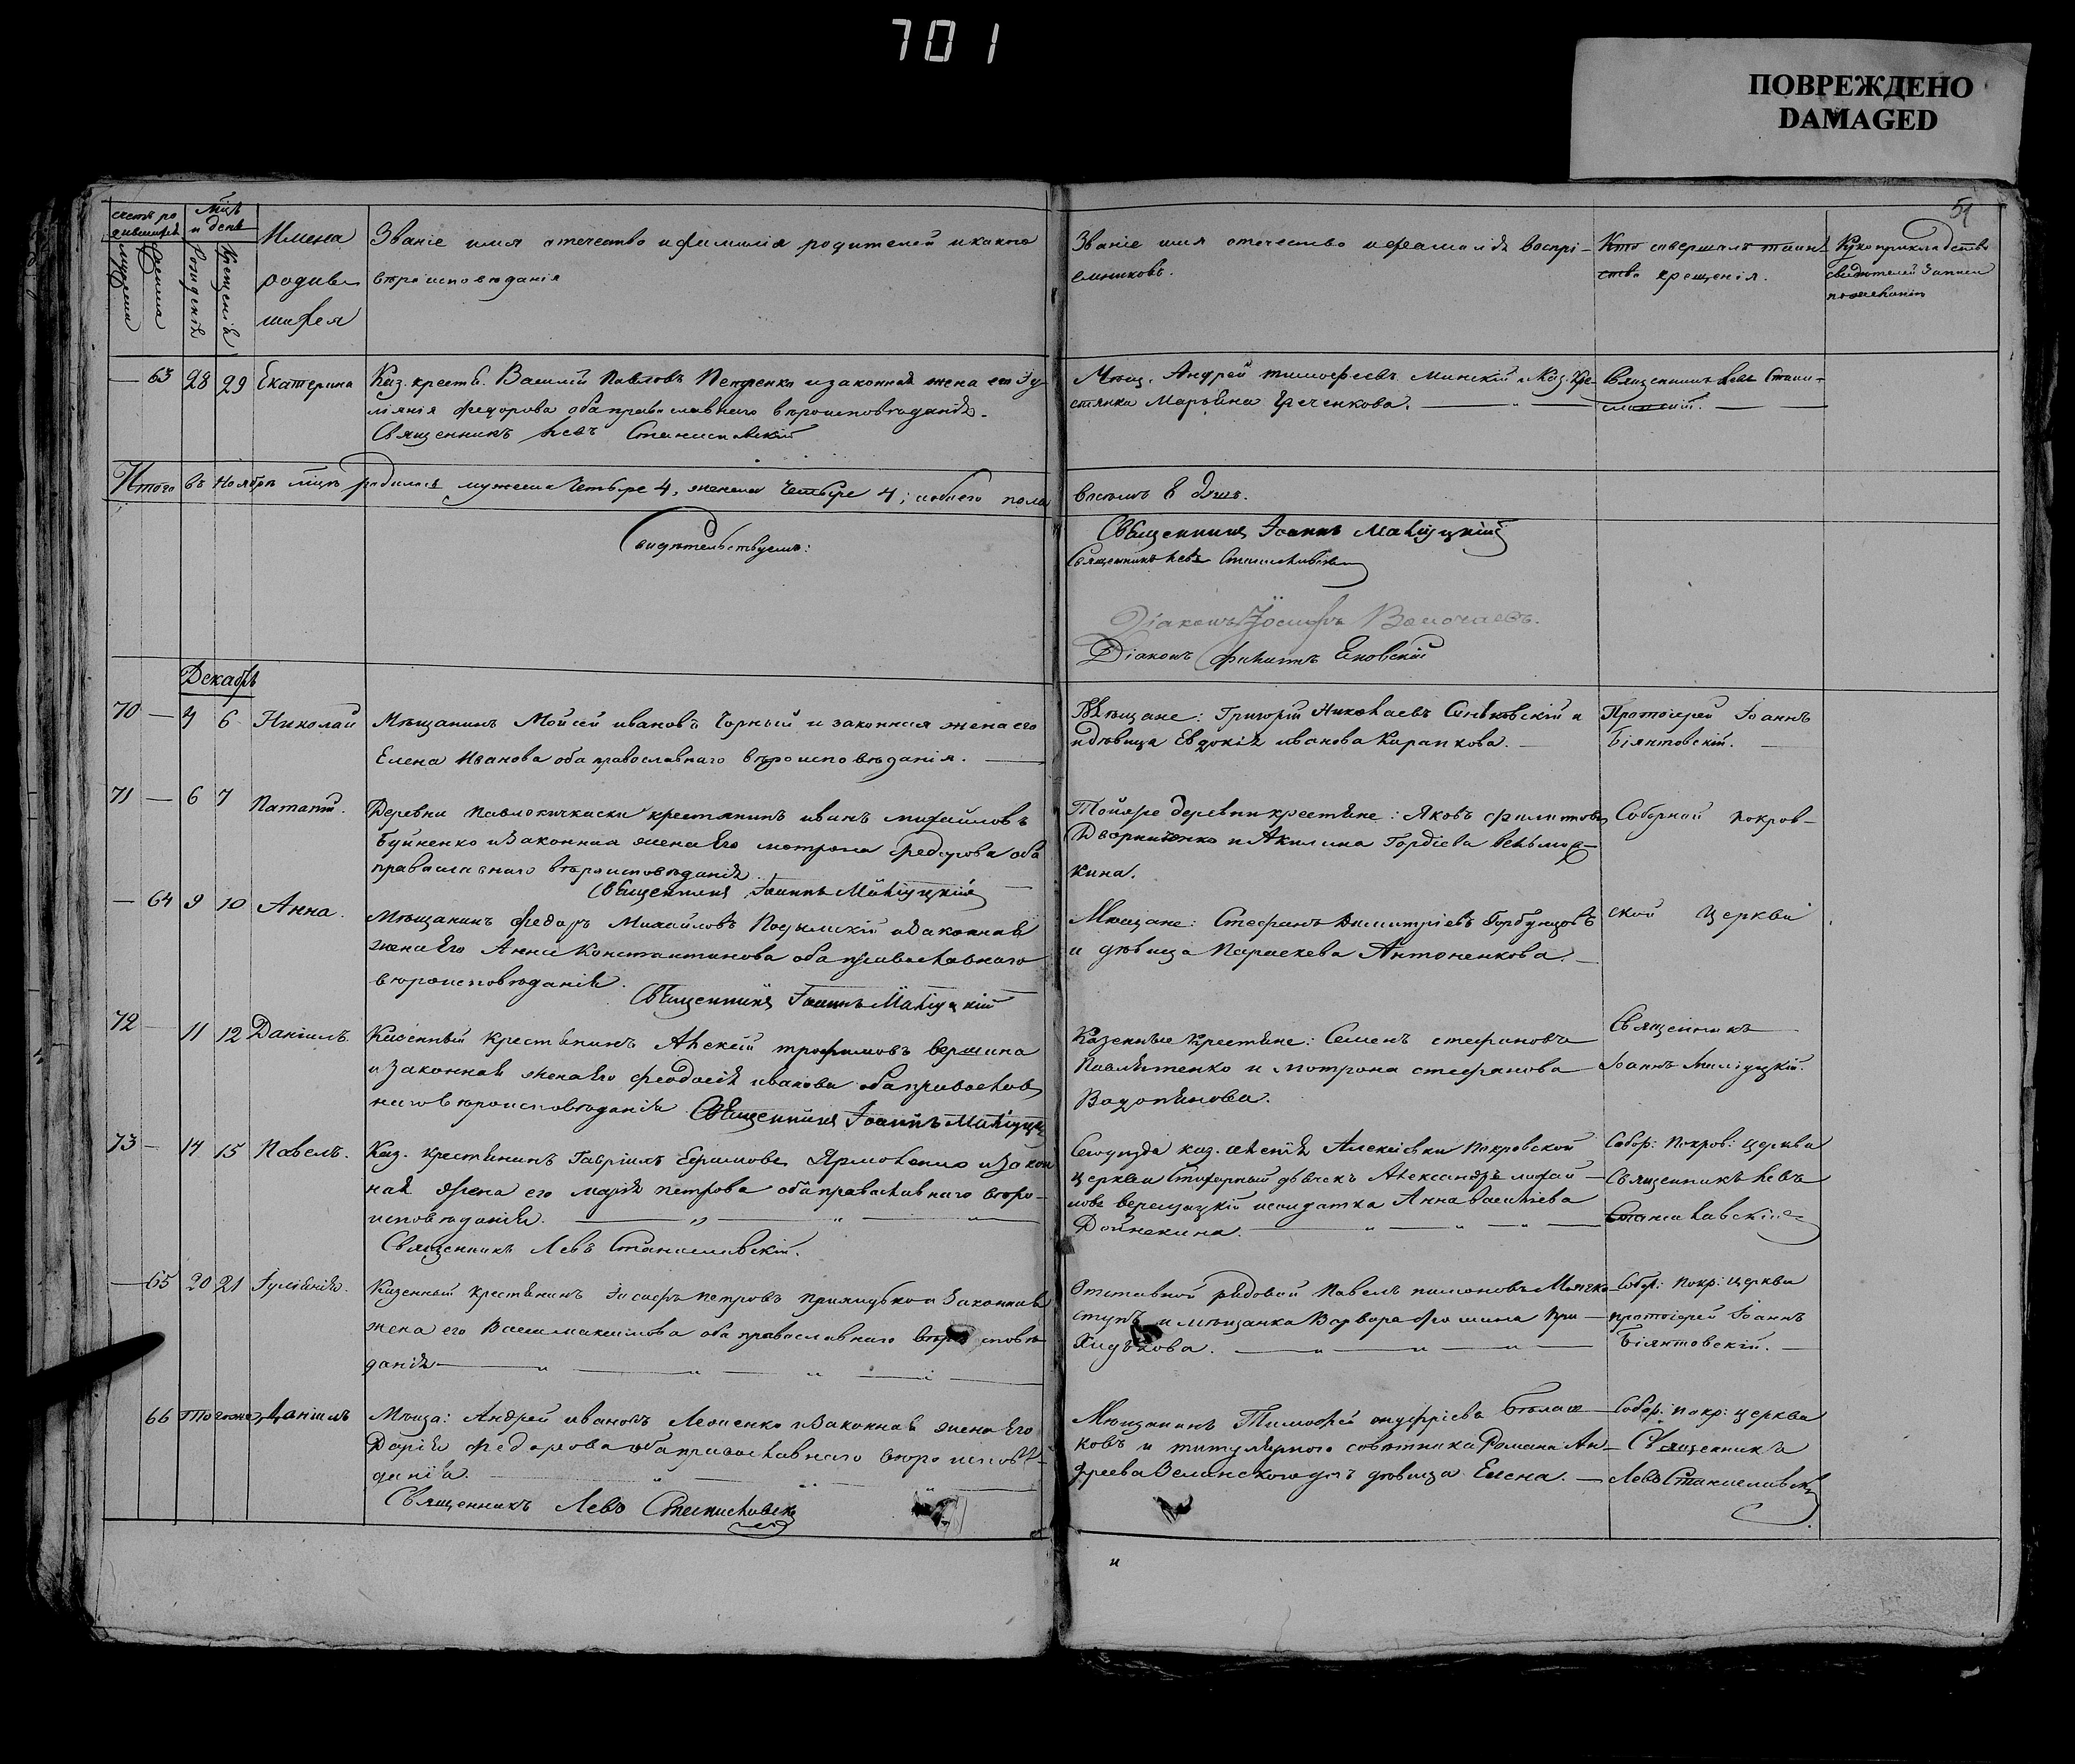 701
ПОВРЕЖДЕНО
DAMAGED
51
счетъ ро
дившихся
мѣцъ
и день
мужеска
женска
рожденія
крещенія
Имена
родив
шихся
Званіе имя отечество и фамилія родителей и какого
вѣроисповѣданія
Званіе имя отечество и фамилія воспрі-
емниковъ.
Кто совершалъ таин
ство крещенія.
Рукоприкладство
свидетелей записи
63 28 29 Екатерина
Каз. крестья. Василій Павловъ Петренко и законная жена его Іу
ліянія Федорова оба православнаго вѣроисповѣданія.
Священникъ Левъ Станиславскій
Мѣщ. Андрей Тимофеевъ Минскій и Каз. Кре
стянка Марьяна Греченкова.
Священникъ Левъ Стани-
славскій.
Итого въ Ноябрѣ мцѣ родилось мужеска четыре 4, женска четыре 4; и обоего пола
восемъ 8 душъ.
Свидѣтельствуемъ:
Священникъ Іоаннъ
Священникъ Левъ Станиславскій
Діаконъ Іосифъ
Діаконъ Филиппъ Еновскій
Декабрь
70 — 4 6 Николай
Мѣщанинъ Мойсей Ивановъ Чорный и законная жена его
Елена Иванова оба православнаго вѣроисповѣданія.
Мѣщане: Григорій Николаевъ Синьковскій и
и дѣвица Евдокія Иванова Карапкова.
Протоіерей Іоаннъ
Біянтовскій.
71 — 6 7 Патапій.
Деревни Павлокичкаски крестянинъ Иванъ Михайловъ
Буйненко и Законная жена Его Мотрона Федорова оба
православнаго вѣроисповѣданія.
Священникъ Іоаннъ
Тойжре деревни крестяне: Яковъ Филиповъ
Дворниченко и Акилина Гордіева
кина.
Соборной Покров-
— 64 9 10 Анна.
Мѣщанинъ Федоръ Михайловъ Подымскій и Законная
жена Его Анна Константинова оба православнаго
вѣроисповѣданія.
Священникъ Іоаннъ
Мѣщане: Стефанъ Димитріевъ Горбунцовъ
и дѣвица Параскева Антоненкова.
ской Церкви
72 — 11 12 Даніилъ
Казенный крестянинъ Алексій Трофимовъ Вершина
и Законная жена Его Феодосія Иванова оба православ
наго вѣроисповѣданія Священникъ Іоаннъ
Казенные крестяне: Семенъ Стефановъ
Павлятенко и Мотрона Стефанова
Водопянова.
Священникъ
Іоаннъ
73 — 14 15 Павелъ.
Каз. крестянинъ Гавріилъ Ефимовъ Ярмоленко и Закон
ная жена его Марія Петрова оба православнаго вѣро-
исповѣданія.
Священникъ Левъ Станиславскій.
Слободы каз. Алексѣевки Покровской
церкви Стихарный дьячекъ Александръ Михай-
ловъ Верещацкій и солдатка Анна Василіева
Дойнекина.
Собор: Покров: церкви
Священникъ Левъ
Станиславскій
— 65 20 21 Іуліянія.
Казенный крестянинъ Іосифъ Петровъ Прихидько и Законная
жена его Васса Максимова оба православнаго вѣро исповѣ
данія
Отставной рядовой Павелъ
ступъ и мѣщанка Варвара Фомина При-
хидькова.
Собор: Покр: церкви
протоіерей Іоаннъ
Біянтовскій.
66 Того же Даніилъ
Мѣща: Андрей Ивановъ Леоненко и Законная жена Его
Дарія Федорова оба православнаго вѣро исповѣ-
данія.
Священникъ Левъ Станиславскій
Мѣщанинъ Тимофей Онуфріевъ Бѣлаш-
ковъ и титулярного совѣтника Романа Ан-
дреева Велинского дочь дѣвица Елена.
Собор: Покр: церкви
Священникъ
Левъ Станиславскій